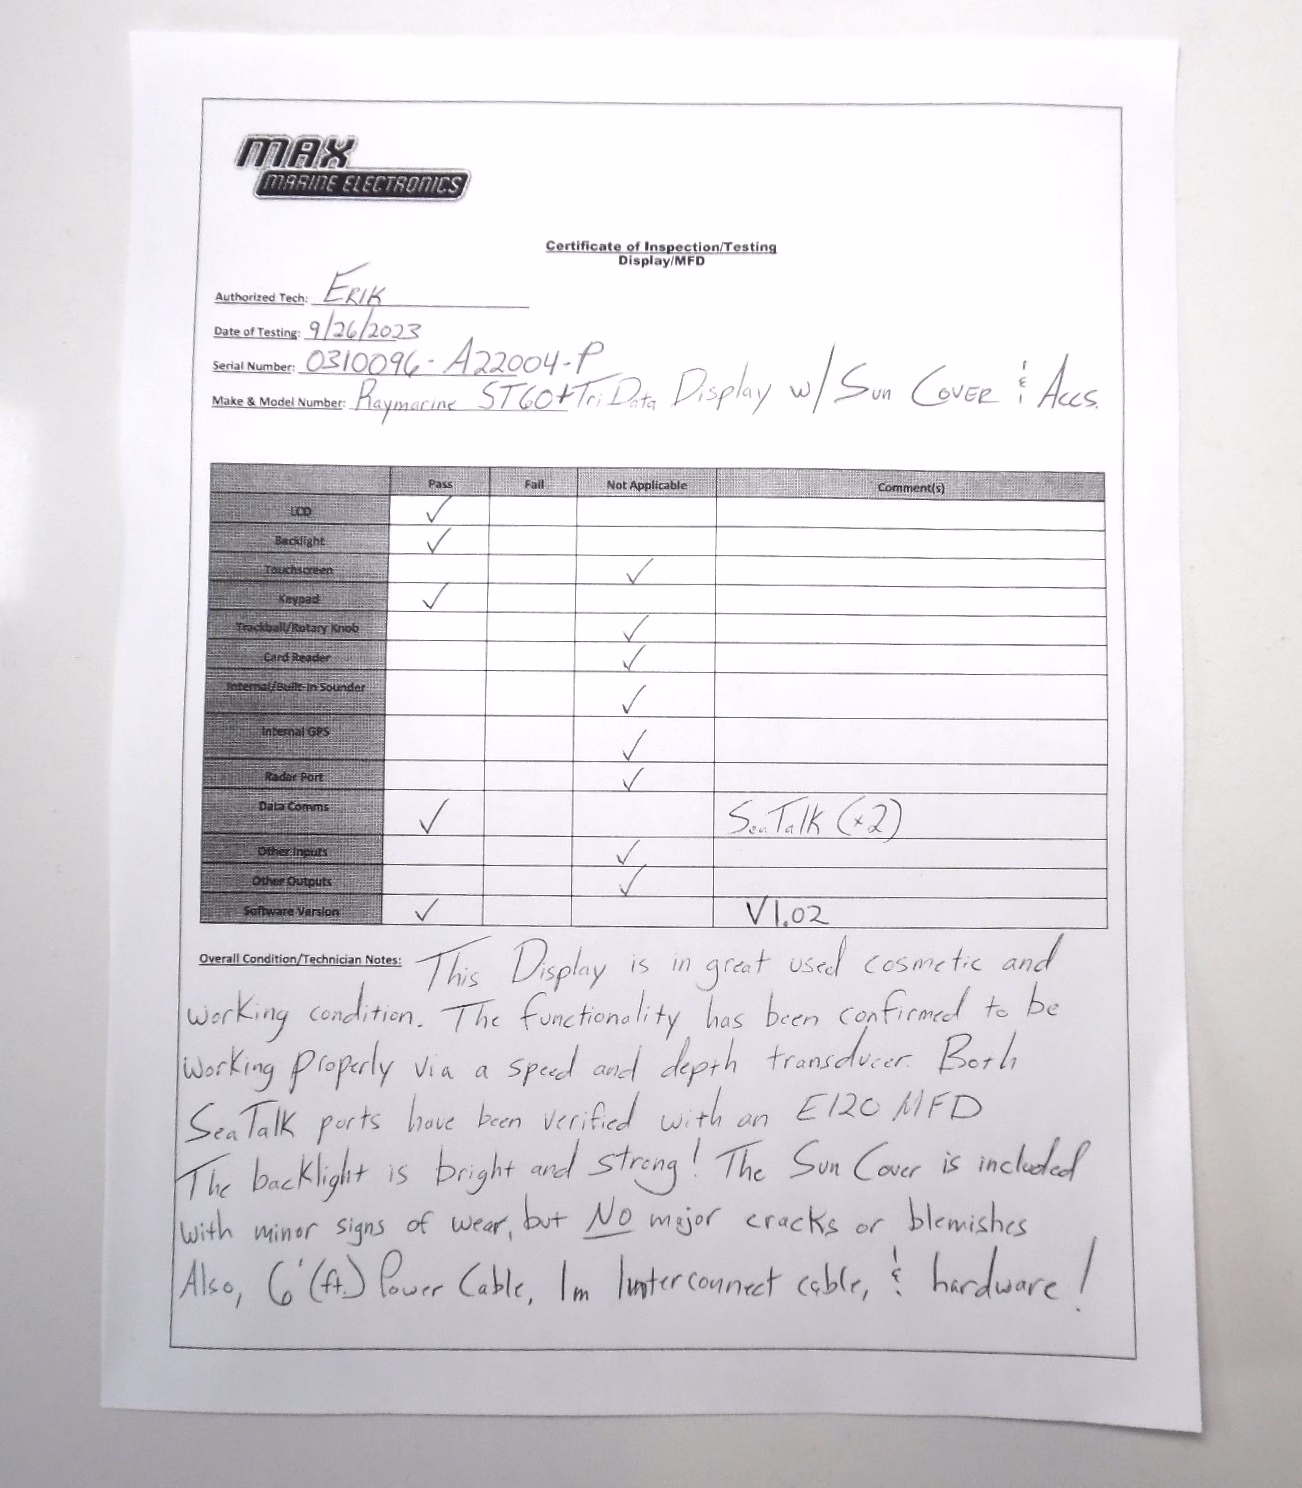 MAX
MARINE ELECTRONICS
Certificate of Inspection/Testing
Display/MFD
Authorized Tech: ERIK
Date of Testing: 9/26/2023
Serial Number: 0310096-A22004-P
Make & Model Number: Raymarine ST60+ Tri Data Display w/ Sun COVER & Accs.
Pass Fail Not Applicable Comment(s)
LCD ✓
Backlight ✓
Touchscreen ✓
Keypad ✓
Trackball/Rotary Knob ✓
Card Reader ✓
Internal/Built-in Sounder ✓
Internal GPS ✓
Radar Port ✓
Data Comms ✓ SeaTalk (x2)
Other Inputs ✓
Other Outputs ✓
Software Version ✓ V1.02
Overall Condition/Technician Notes: This Display is in great used cosmetic and
working condition. The functionality has been confirmed to be
working properly via a speed and depth transducer. Both
SeaTalk ports have been verified with an E120 MFD
The backlight is bright and strong! The Sun Cover is included
with minor signs of wear, but NO major cracks or blemishes
Also, 6' (ft.) Power Cable, 1m Interconnect cable, & hardware!